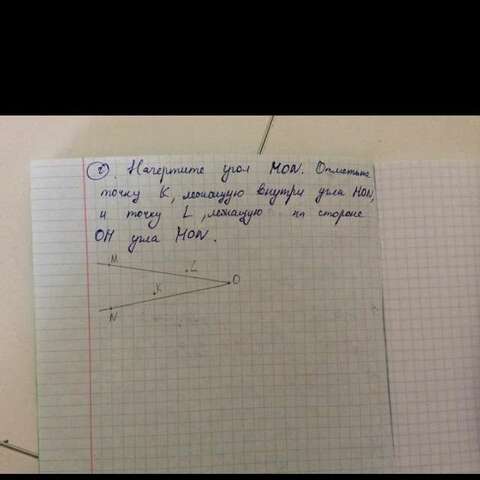 2. Начертите угол MON. Отметьте
точку K, лежащую внутри угла MON,
и точку L, лежащую на стороне
OM угла MON.
M
L
O
K
N